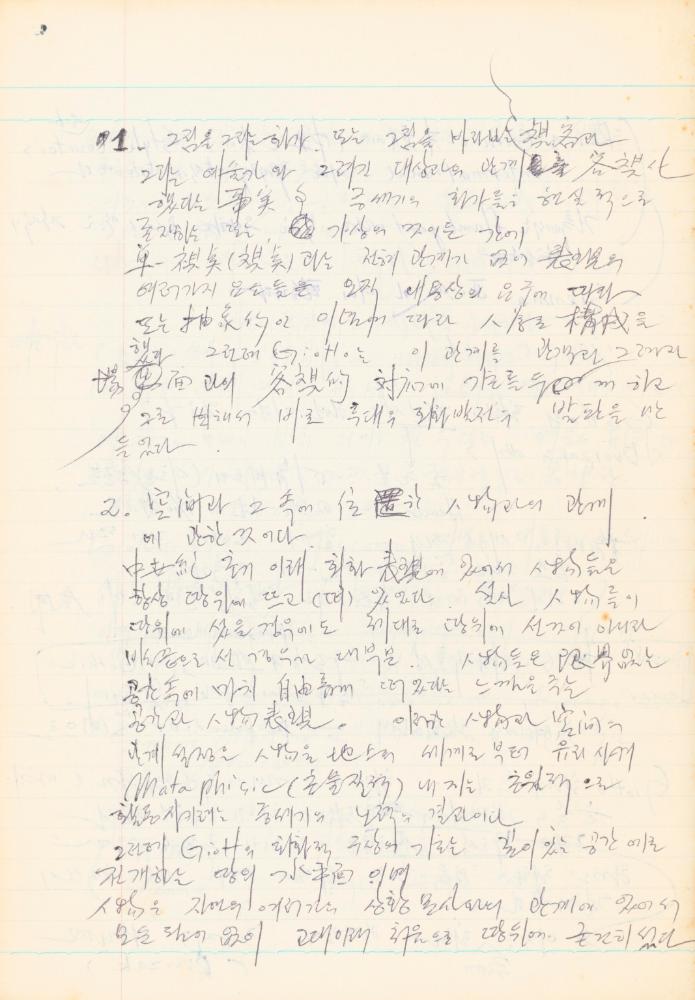 1. 그림을 그리는 화가, 또는 그림을 바라보는 觀客과
그리는 예술가와 그려진 대상과의 관계 客観化
했다는 事実
중세기의 화가들은 현실적으로
존재하는 또는 가상의 것이든 간에
単一 視覚(視覚)과는 전혀 관계가 없이 表現의
여러가지 요소들을 오직 내용상의 요구에 따라
또는 抽象的인 이념에 따라 人物을 構成을
했다 그런데 Giotto는 이 관계를 관객과 그려진
場面과의 客観的 対称에 기초를 두게 하고
그로 변해서 바로 후대의 회화발전의 발판을 만
들었다.
2. 空间과 그 속에 位置한 人物과의 관계
에 관한 것이다
中世紀 초기 이래 회화 表現에 있어서 人物들은
항상 땅위에 뜨고 (떠) 있었다. 설사 人物들이
땅위에 섰을 경우에도 제대로 땅위에 선것이 아니라
비스듬으로 선 경우가 대부분. 人物들은 限界없는
공간속에 마치 自由롭게 떠있다는 느낌을 주는
공간과 人物表現. 이러한 人物과 空间의
관계 설정은 人物을 地上의 세계로부터 유리시켜
Mataphisic (초물질적) 내지는 초월적으로
활동시키려는 중세기의 노력의 결과이다
그런데 Giotto의 회화적 구상의 기초는 깊이 있는 공간에로
전개하는 땅의 水平面 이며
人物은 자연의 여러가지 상황묘사와의 관계에 있어서
모순됨이 없이 고대이래 처음으로 땅위에 굳건히 섰다